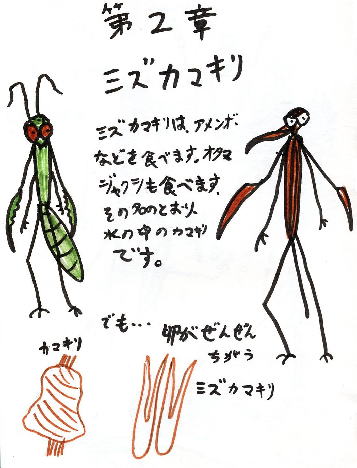 第2章
ミズカマキリ
ミズカマキリは、アメンボ
などを食べます。オタマ
ジャクシも食べます。
その名のとおり、
水の中のカマキリ
です。
でも…
卵がぜんぜん
ちがう
カマキリ
ミズカマキリ